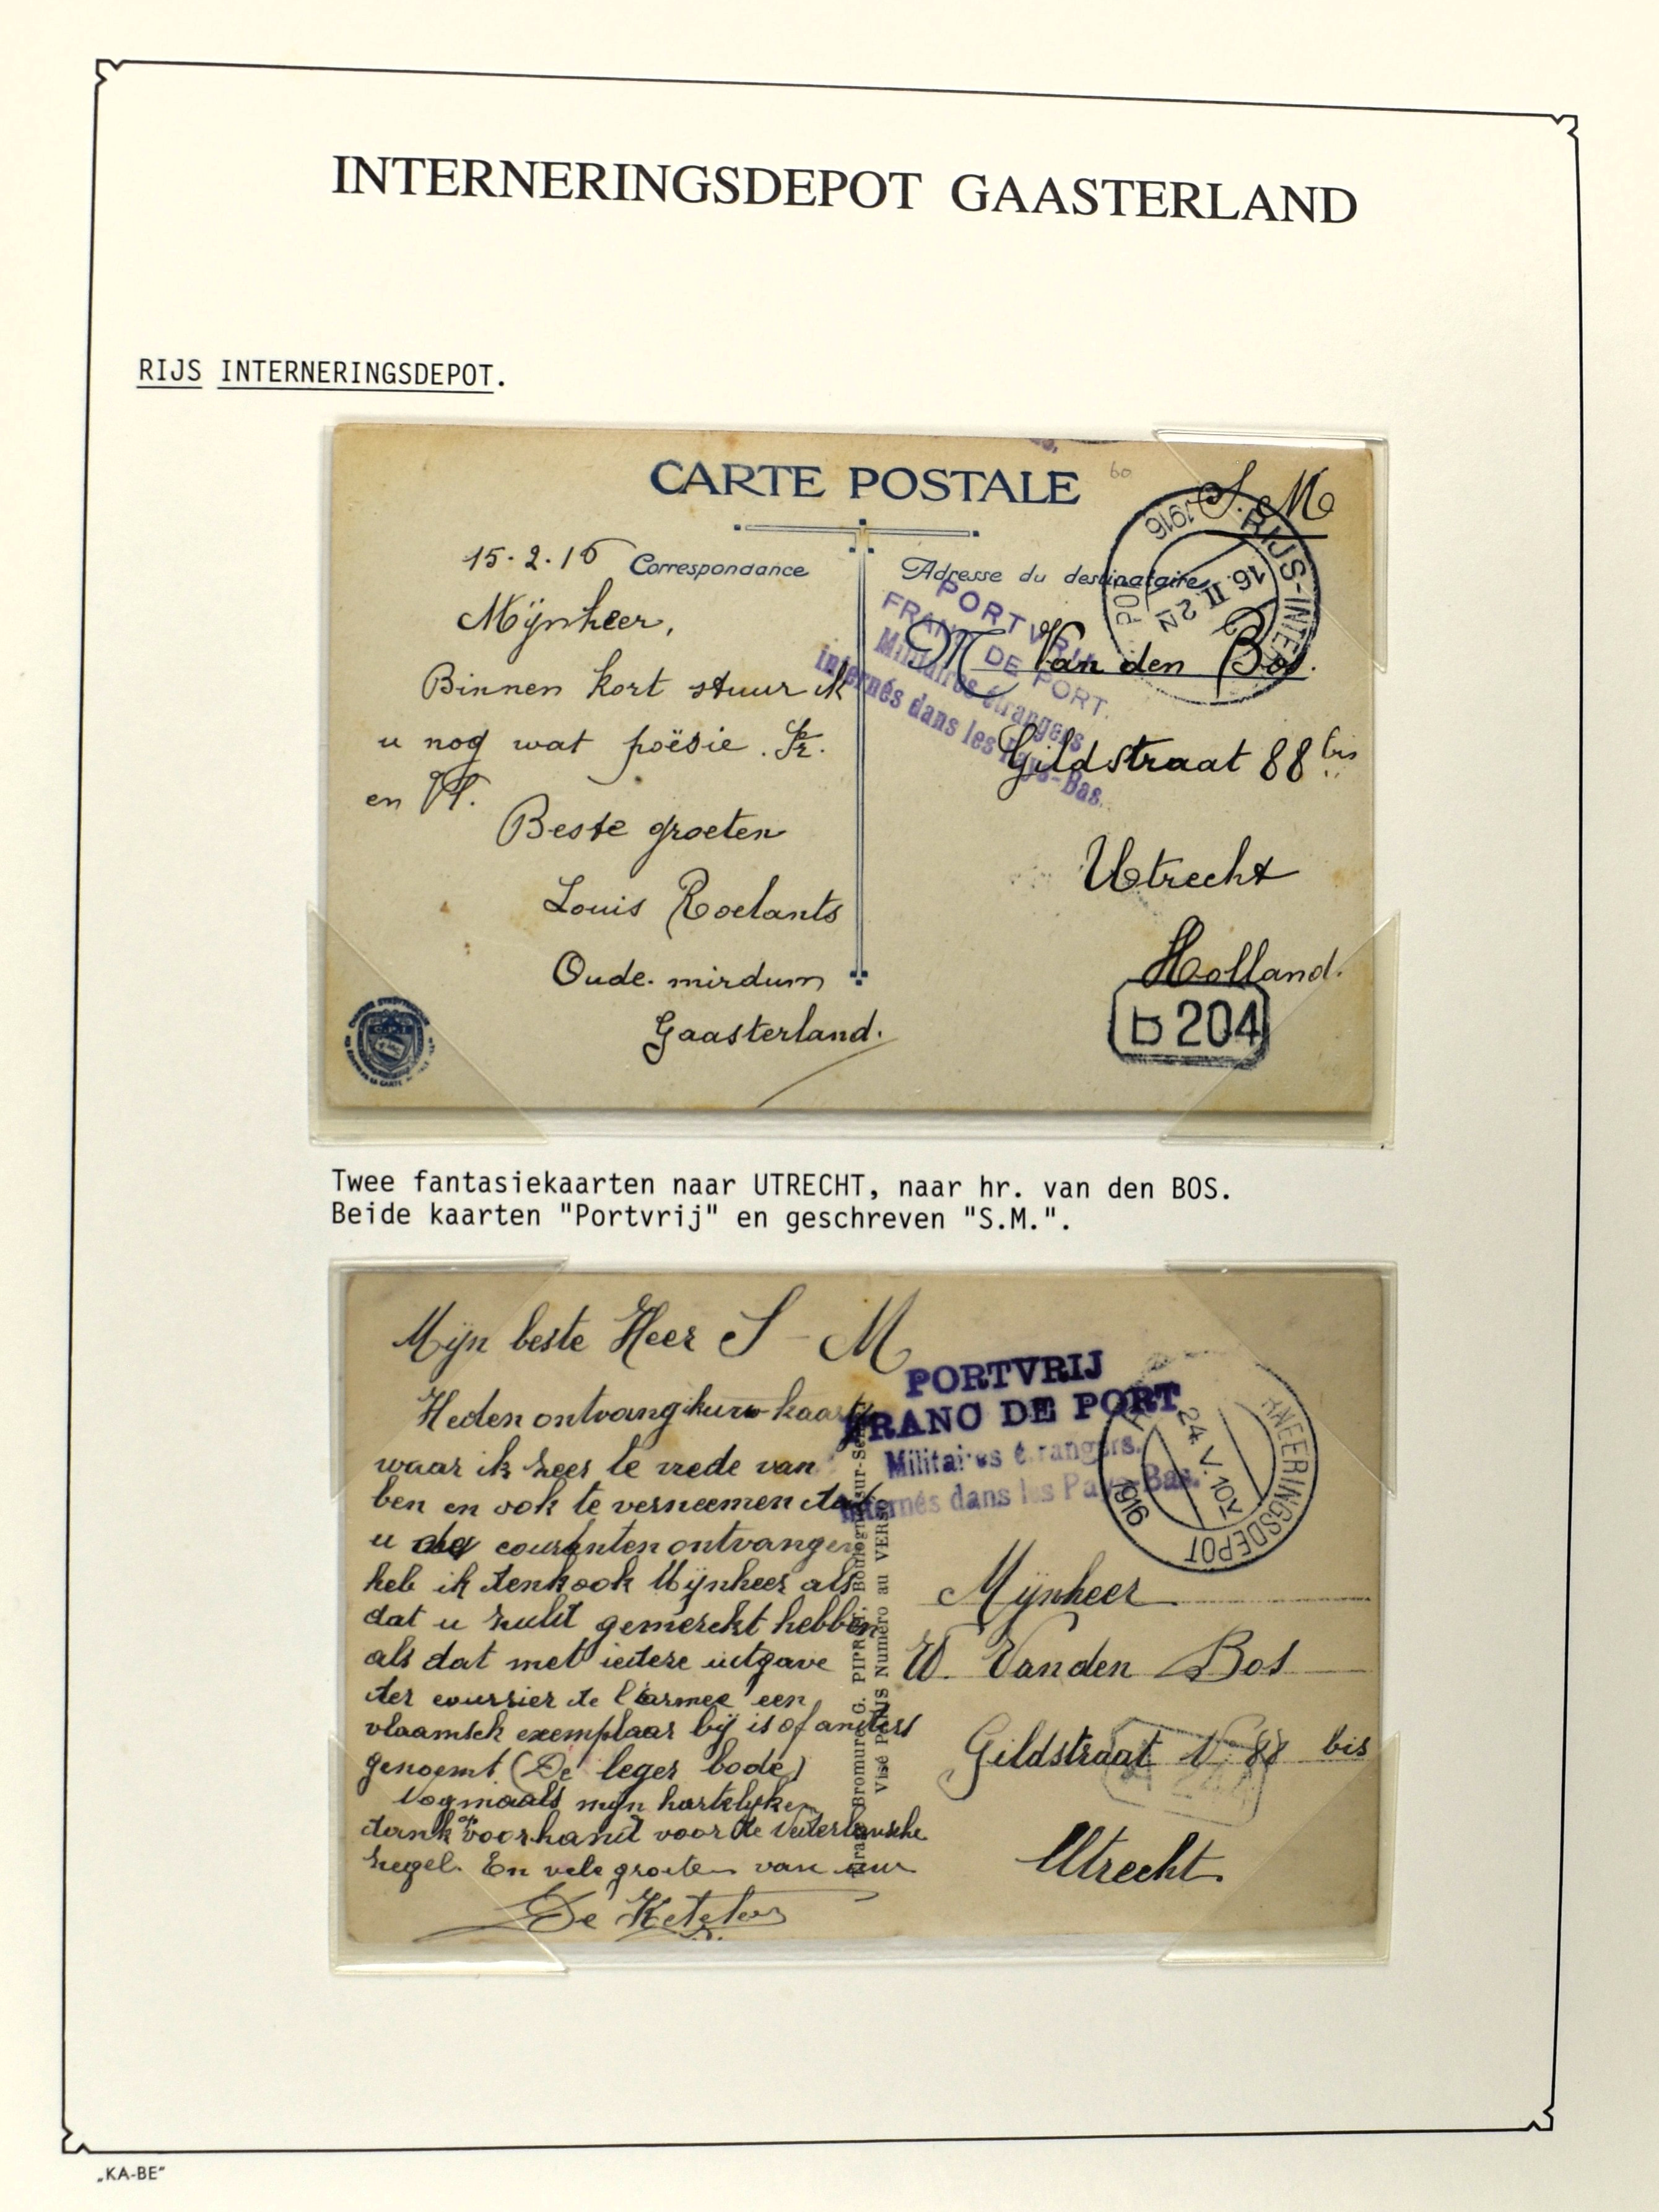 INTERNERINGSDEPOT GAASTERLAND
RIJS INTERNERINGSDEPOT.
CARTE POSTALE
60
S. M
15.2.16
Correspondance
Adresse du destinataire
1916
RIJS-INTER
POT
16. II 2N
PORTVRIJ
FRANC DE PORT.
Militaires étrangers
internés dans les Pays-Bas.
Mijnheer,
Binnen kort stuur ik
u nog wat poësie. Fr.
en Vl.
Beste groeten
Louis Roelants
Oude-mirdum
Gaasterland.
M Van den Bos.
Gildstraat 88 bis
Utrecht
Holland.
204
Twee fantasiekaarten naar UTRECHT, naar hr. van den BOS.
Beide kaarten "Portvrij" en geschreven "S.M.".
Mijn beste Heer S - M
Heden ontvang ik uw kaart
waar ik zeer te vrede van
ben en ook te verneemen dat
u de couranten ontvangen
heb ik denk ook Mijnheer als
dat u zult gemerckt hebben
als dat met iedere uitgave
der courrier de l'armee een
vlaamsch exemplaar bij is of anders
genoemt (De leger bode)
Nogmaals mijn hartelijken
dank op voorhand voor de
zegel. En vele groeten van
De Ketelers
PORTVRIJ
FRANC DE PORT
Militaires étrangers.
internés dans les Pays-Bas.
24.V.10V
1916
RNEERINGSDEPOT
Bromure G. PIPR Boulogne-sur-Seine
Visé PARIS Numéro au VERSO
Mijnheer
W. Van den Bos
Gildstraat N° 88 bis
Utrecht.
„KA-BE"